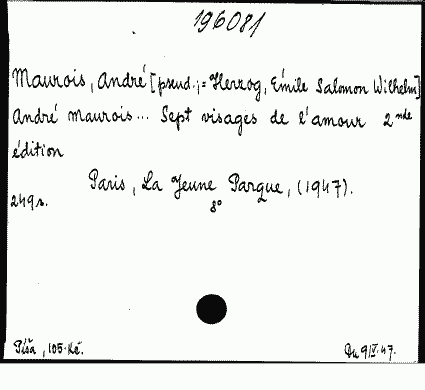 196081
Maurois, André [pseud.;= Herzog, Émile Salomon Wilhelm]
André Maurois... Sept visages de l'amour 2nde
édition
Paris, La Jeune Parque, (1947).
249s. 8°
Píša, 105.Kč. Du 9/IV.47.